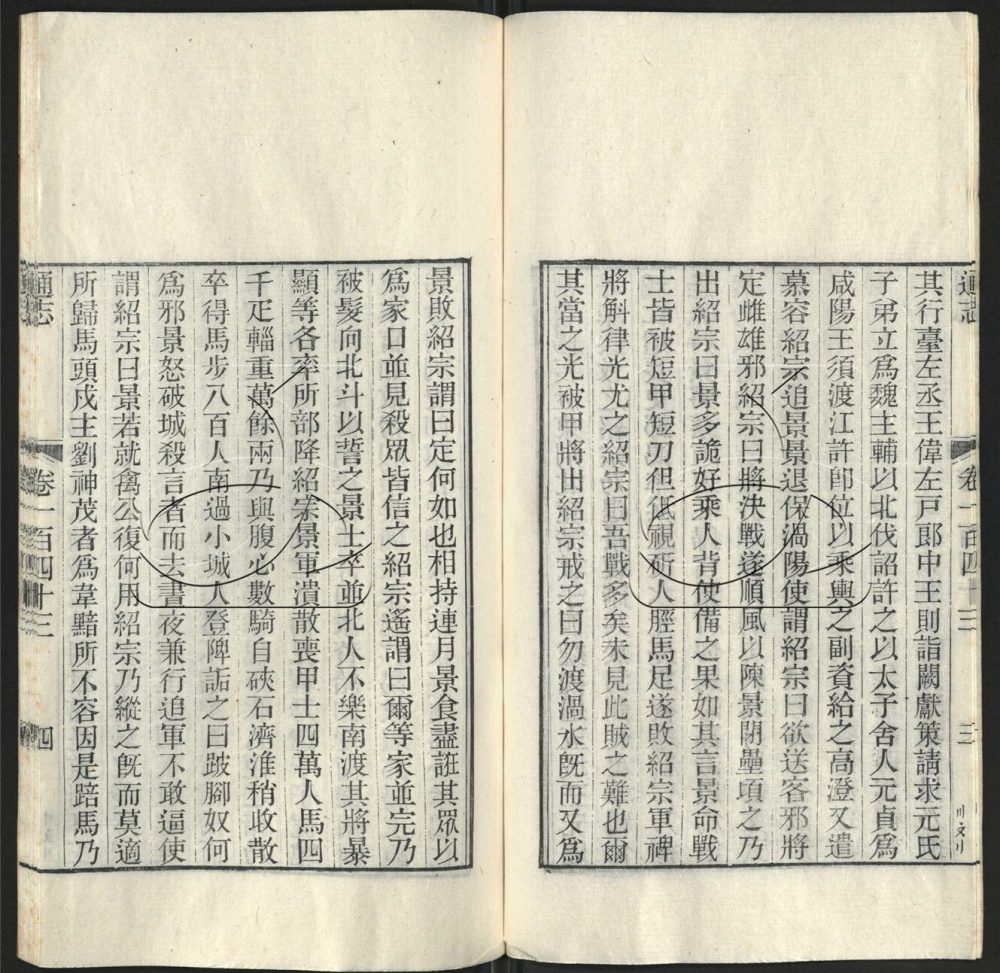 通志
卷一百四十三
三
其行臺左丞王偉左戸郎中王則詣闕獻策請求元氏
子弟立爲魏主輔以北伐詔許之以太子舍人元貞爲
咸陽王須渡江許卽位以乘輿之副資給之高澄又遣
慕容紹宗追景景退保渦陽使謂紹宗曰欲送客邪將
定雌雄邪紹宗曰將決戰遂順風以陳景閉壘頃之乃
出紹宗曰景多詭好乘人背使備之果如其言景命戰
士皆被短甲短刃但低視斫人脛馬足遂敗紹宗軍禆
將斛律光尤之紹宗曰吾戰多矣未見此賊之難也爾
其當之光被甲將出紹宗戒之曰勿渡渦水旣而又爲
景敗紹宗謂曰定何如也相持連月景食盡誑其眾以
爲家口並見殺眾皆信之紹宗遙謂曰爾等家並完乃
被髮向北斗以誓之景士卒並北人不樂南渡其將暴
顯等各率所部降紹宗景軍潰散喪甲士四萬人馬四
千疋輜重萬餘兩乃與腹心數騎自硤石濟淮稍收散
卒得馬步八百人南過小城人登陴詬之曰跛腳奴何
爲邪景怒破城殺言者而去晝夜兼行追軍不敢逼使
謂紹宗曰景若就禽公復何用紹宗乃縱之旣而莫適
所歸馬頭戍主劉神茂者爲韋黯所不容因是踣馬乃
通志
卷一百四十三
四